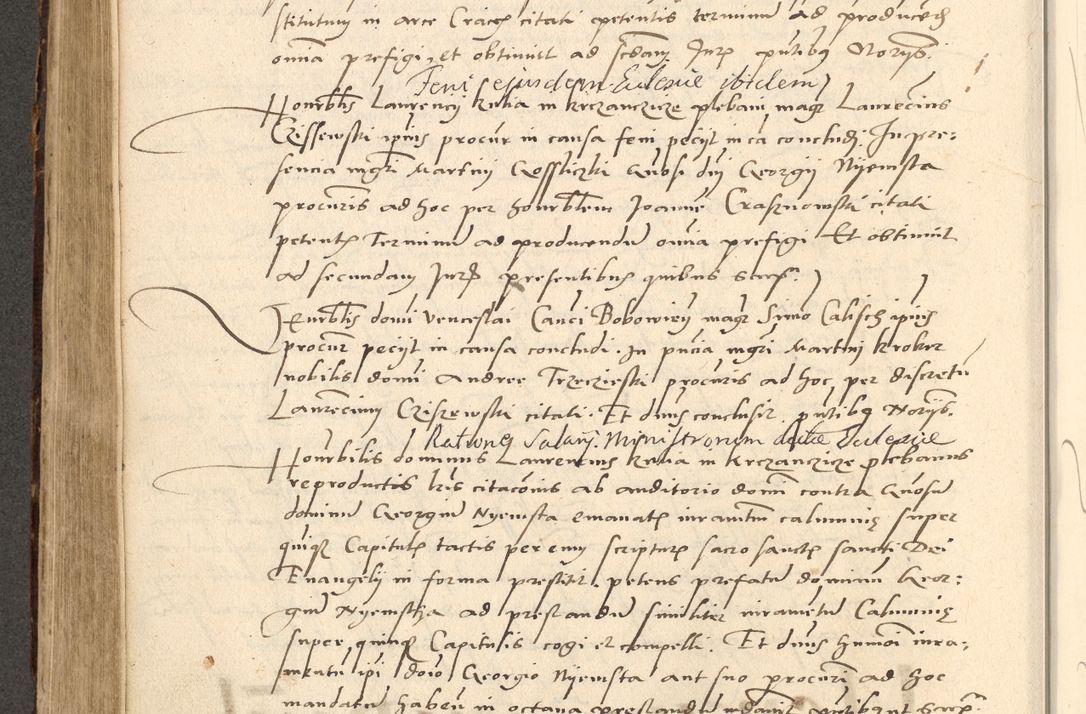 stitutum in arce Cracoviensi citati petentis terminum ad producendum
omnia prefigi, et obtinuit ad scdam Jurp. pntibq Norijs.
Feni eiusdem Ecclesie ibidem
Honrblis Laurencij Kulia in Krczanczicze plebani magr Laurecius
Czissewski ipius procur in causa feni pecijt in ca concludi. In pre-
sencia mgri Martini Gosliczki Gnosi dni Georgij Nyemsta
procuris ad hoc per honrblem Joanne Crasznowski citati
petentis Terminum ad producendum omnia prefigi Et obtinuit
ad secundam Jurp presentibus quibus supra
Honrblis domi Venceslai Canci Bobowien magr Simo Calisch ipius
procur pecijt in causa concludi. In pncia mgri Martini Kroker
nobilis domi Andree Trzeczieski procuris ad hoc per discretu
Laurecium Cziszewski citati. Et dnus conclusit pntibq Norijs.
Rationes Salarij Ministrorum dictae Ecclesie
Honrbilis dominus Laurencius Kulia in Krczanczicze plebanus
reproductis lris citaconis ab auditorio domi contra Gnosum
dominum Georgium Nyemsta emanatis iuramentum calumnie super
quique Capitulis tactis per eum scripturis sacro sanctis sancti Dei
Euangelij in forma prestitit. petens prefatum dominum Geor-
gium Nyemstha ad prestandum similiter iuramentum Calumnie
super quinque Capitulis cogi et compelli. Et dnus humoi iura-
mentu ipi dno Georgio Nyemsta aut suo procuri ad hoc
mandatum habenti in octaua prestandum